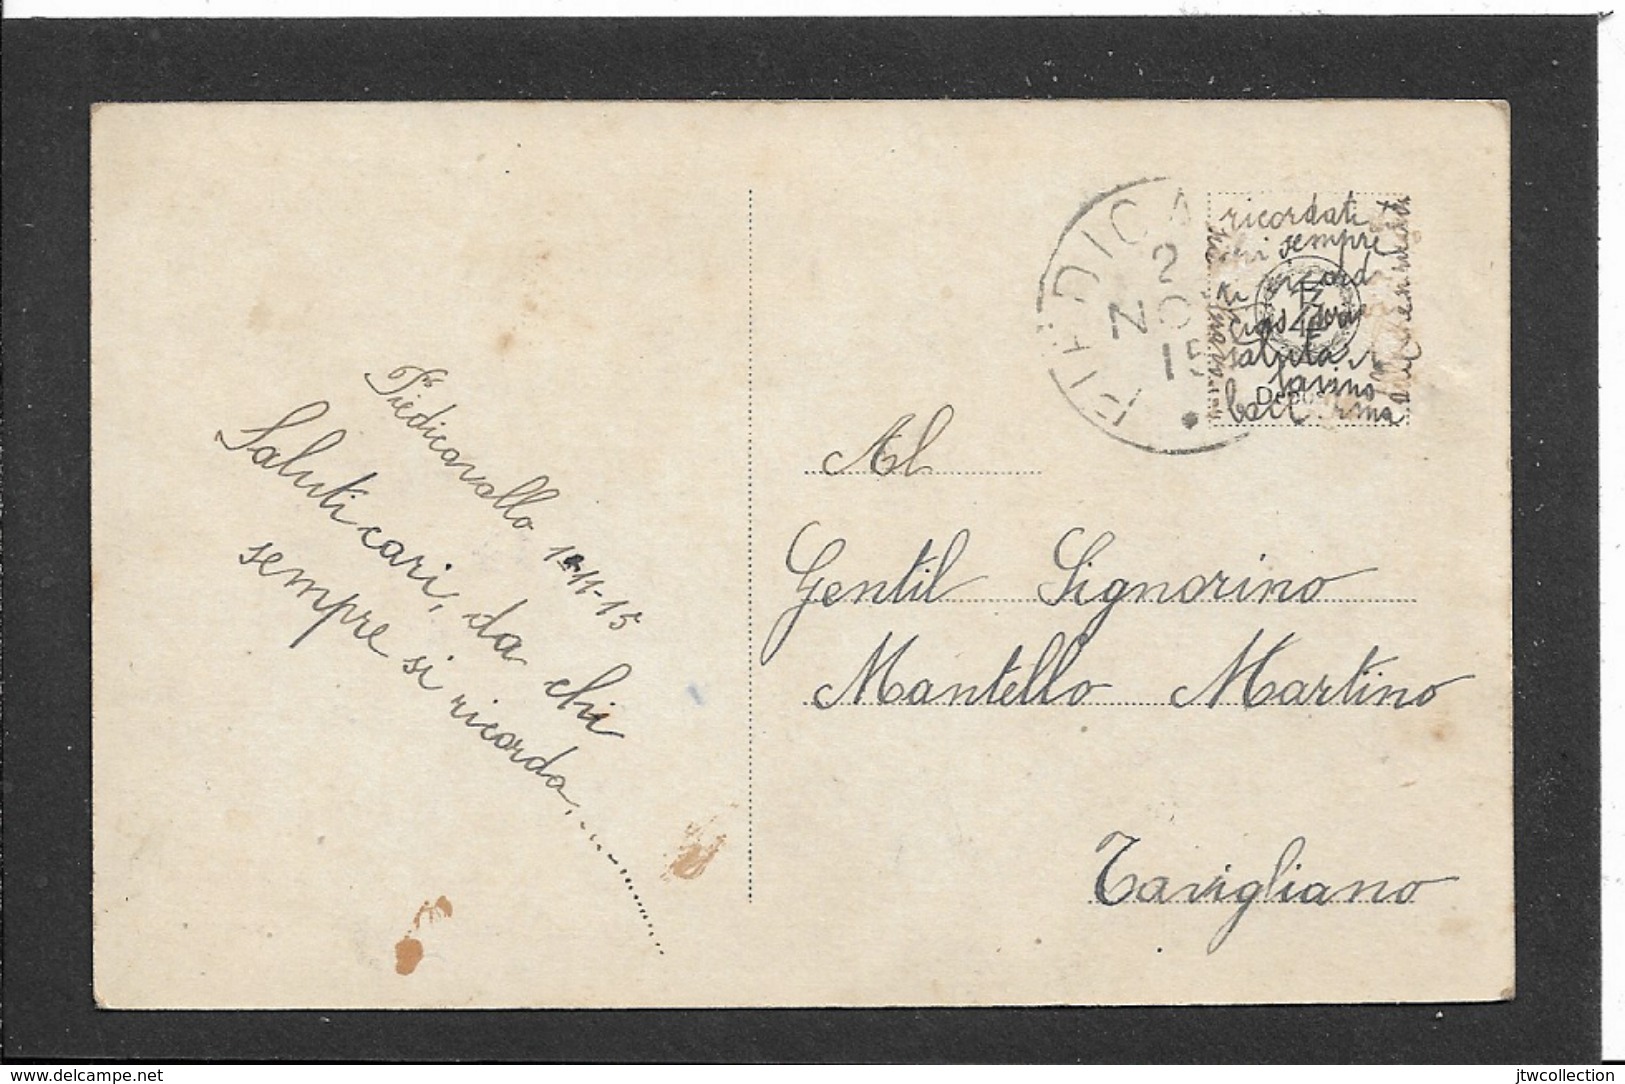 Piedicavallo 1-11-15
Saluti cari, da chi
sempre si ricorda.
PIEDICA
2
NO
15
ricordati
sempre
saluta
Al
Gentil Signorino
Mantello Martino
Tavigliano
delcampe.net
jtwcollection